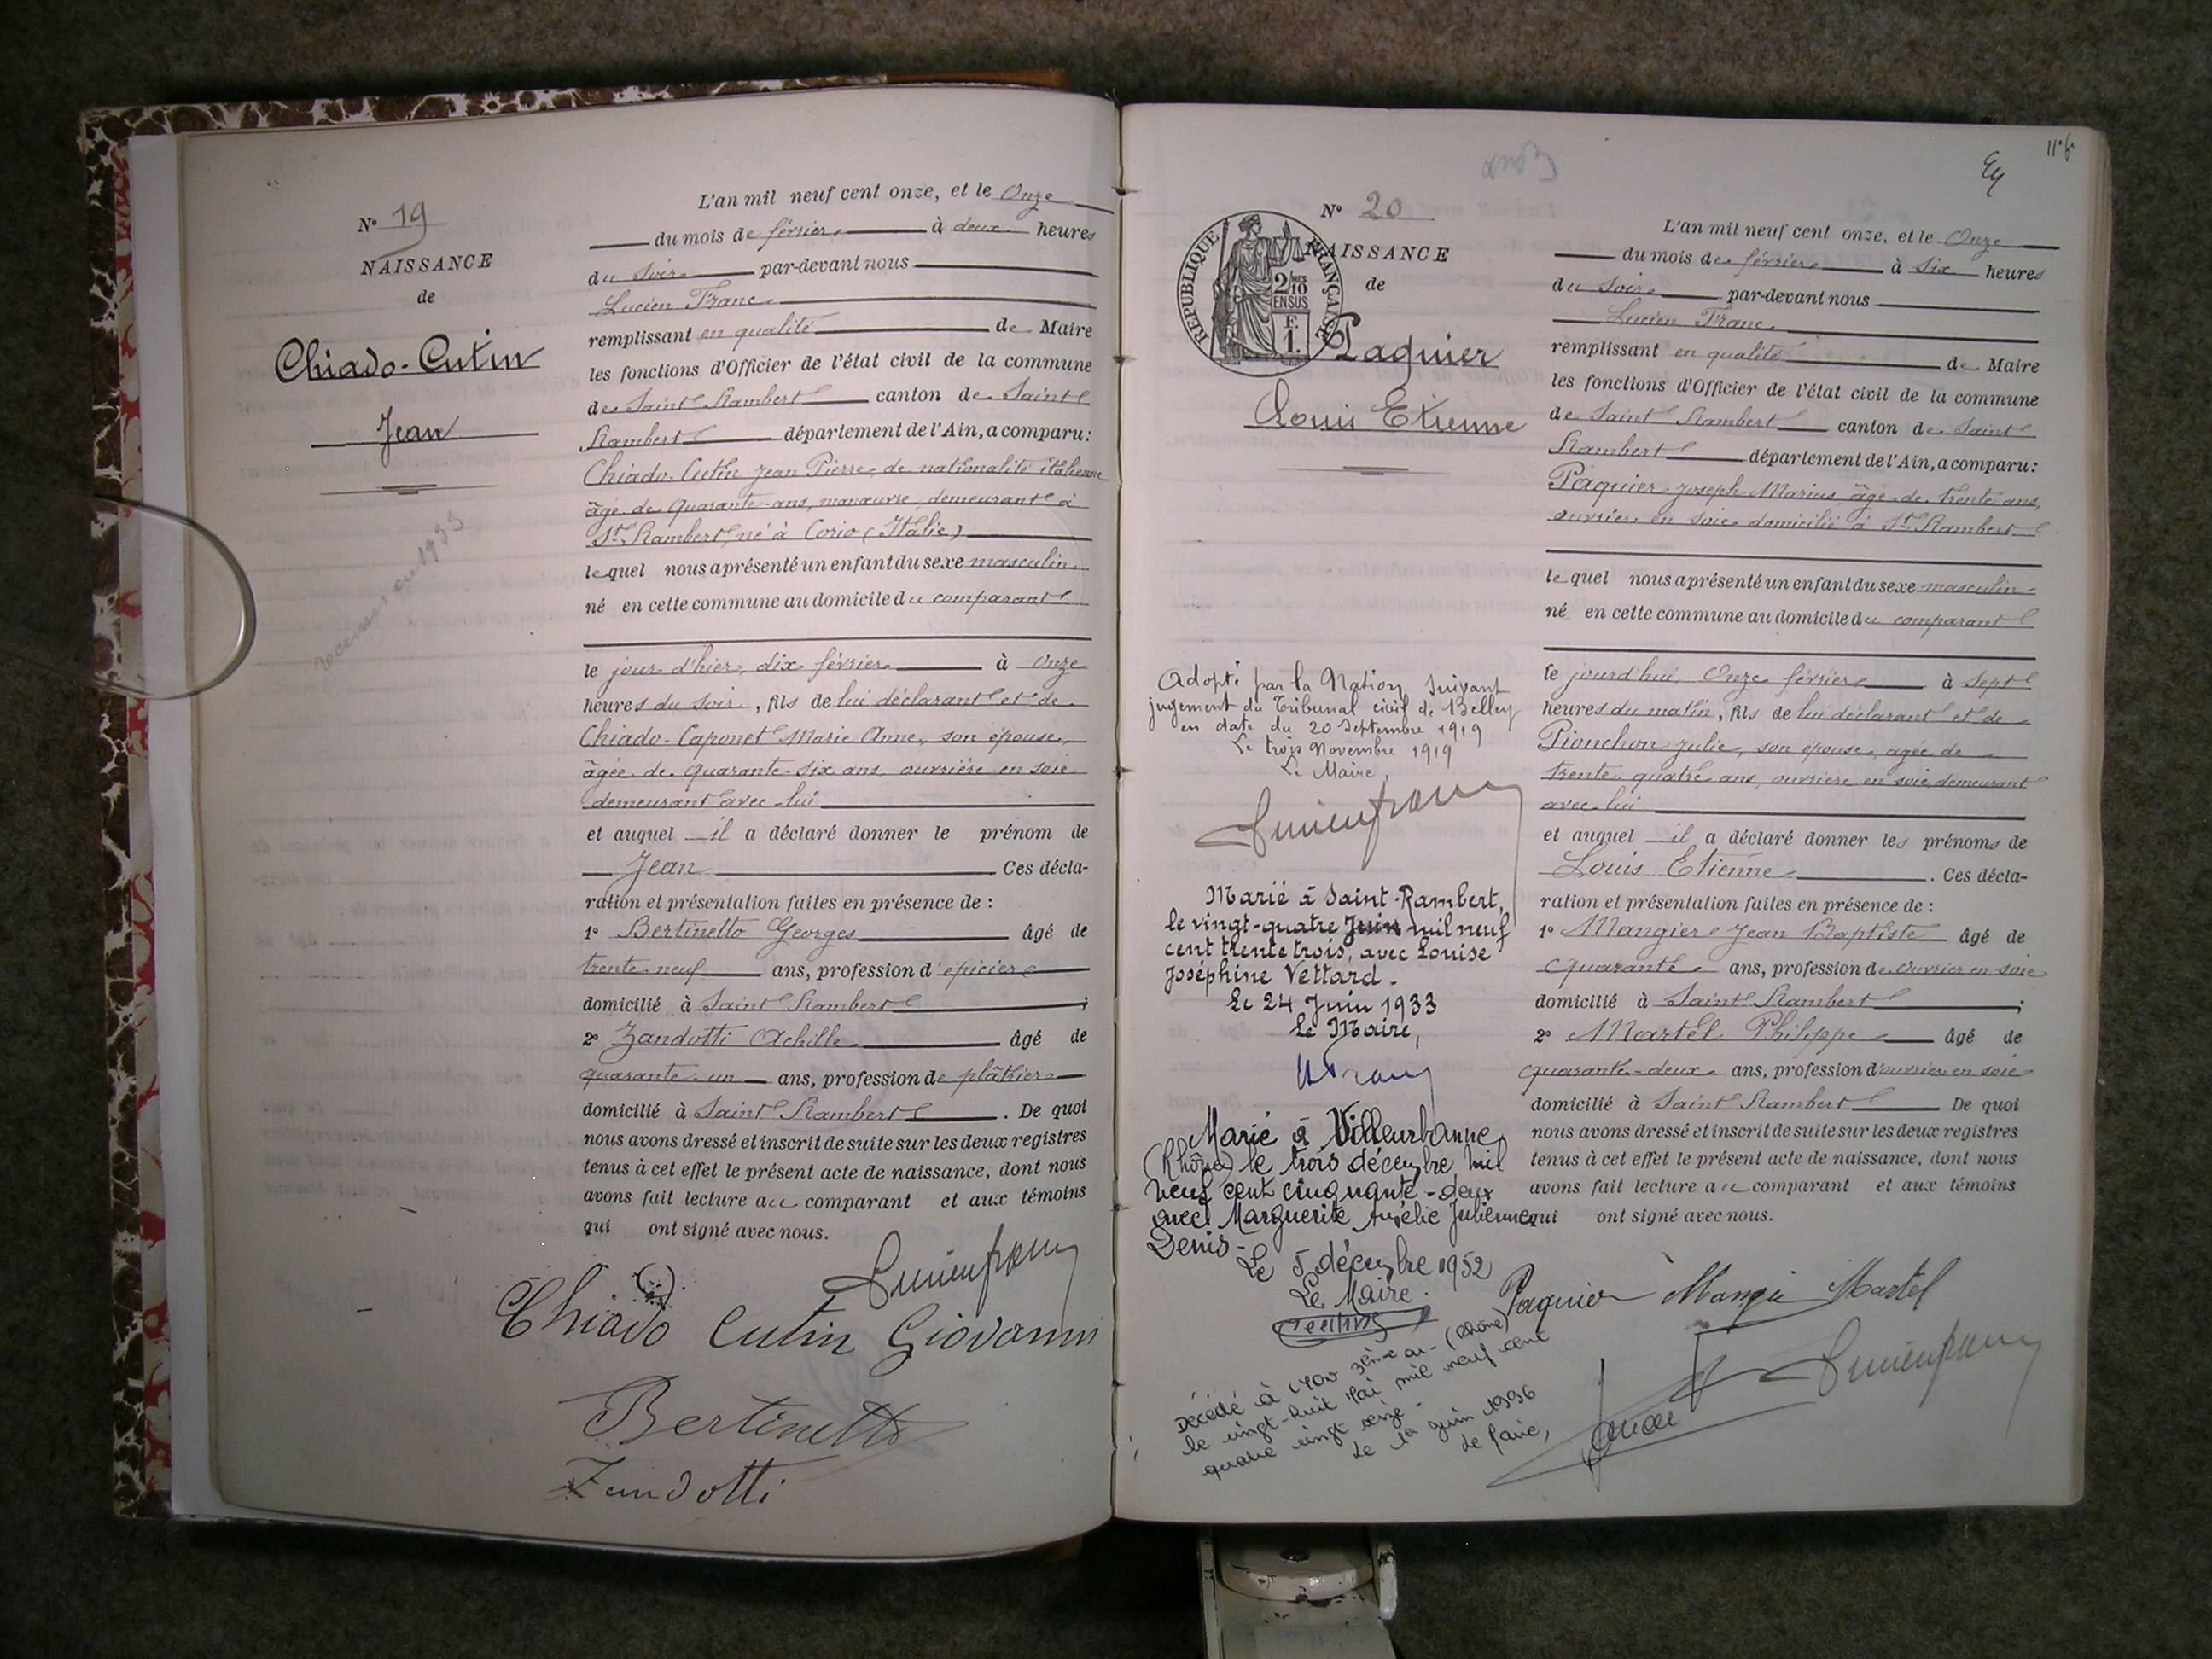 N° 19
NAISSANCE
de
Chiado-Cutin
Jean
recensé en 1933
L'an mil neuf cent onze, et le Onze
du mois de février à deux heures
du soir par-devant nous
Lucien Franc
remplissant en qualité de Maire
les fonctions d'Officier de l'état civil de la commune
de Saint Rambert canton de Saint
Rambert département de l'Ain, a comparu:
Chiado-Cutin Jean Pierre, de nationalité italienne
âgé de Quarante ans, manœuvre, demeurant à
St Rambert, né à Corio (Italie)
lequel nous a présenté un enfant du sexe masculin
né en cette commune au domicile du comparant
le jour d'hier, dix février à Onze
heures du soir, fils de lui déclarant et de
Chiado-Caponet Marie Anne, son épouse,
âgée de quarante-six ans, ouvrière en soie
demeurant avec lui
et auquel il a déclaré donner le prénom de
Jean Ces décla-
ration et présentation faites en présence de :
1° Bertinetto Georges âgé de
trente-neuf ans, profession d'épicier
domicilié à Saint Rambert ;
2° Zandotti Achille âgé de
quarante-un ans, profession de plâtrier
domicilié à Saint Rambert. De quoi
nous avons dressé et inscrit de suite sur les deux registres
tenus à cet effet le présent acte de naissance, dont nous
avons fait lecture au comparant et aux témoins
qui ont signé avec nous.
Lucien franc
Chiado Cutin Giovanni
Bertinetto
Zandotti
N° 20
NAISSANCE
de
RÉPUBLIQUE FRANÇAISE
2/10 EN SUS
F. 1.
Paquier
Louis Etienne
Adopté par la Nation suivant
jugement du Tribunal civil de Belley
en date du 20 Septembre 1919
Le trois Novembre 1919
Le Maire,
Lucien franc
Marié à Saint-Rambert,
le vingt-quatre Juin mil neuf
cent trente trois, avec Louise
Joséphine Vettard.
Le 24 Juin 1933
Le Maire,
Marié à Villeurbanne
(Rhône) le trois décembre mil
neuf cent cinquante-deux
avec Marguerite Aurélie Julienne
Denis.
Le 5 décembre 1952
Le Maire.
Décédé à Lyon 3ème ar- (Rhône)
le vingt-huit Mai mil neuf cent
quatre vingt seize.
Le 1er Juin 1996
Le Maire,
L'an mil neuf cent onze, et le Onze
du mois de février à six heures
du soir par-devant nous
Lucien Franc
remplissant en qualité de Maire
les fonctions d'Officier de l'état civil de la commune
de Saint Rambert canton de Saint
Rambert département de l'Ain, a comparu:
Paquier Joseph Marius âgé de trente ans,
ouvrier en soie domicilié à St Rambert
lequel nous a présenté un enfant du sexe masculin
né en cette commune au domicile du comparant
le jourd'hui, Onze février à sept
heures du matin, fils de lui déclarant et de
Pionchon Julie, son épouse, agée de
trente-quatre ans, ouvrière en soie, demeurant
avec lui
et auquel il a déclaré donner les prénoms de
Louis Etienne. Ces décla-
ration et présentation faites en présence de :
1° Mangier Jean Baptiste âgé de
Quarante ans, profession de ouvrier en soie
domicilié à Saint Rambert ;
2° Martel Philippe âgé de
quarante-deux ans, profession d'ouvrier en soie
domicilié à Saint Rambert De quoi
nous avons dressé et inscrit de suite sur les deux registres
tenus à cet effet le présent acte de naissance, dont nous
avons fait lecture au comparant et aux témoins
qui ont signé avec nous.
Paquier Mangier Martel
Lucien franc